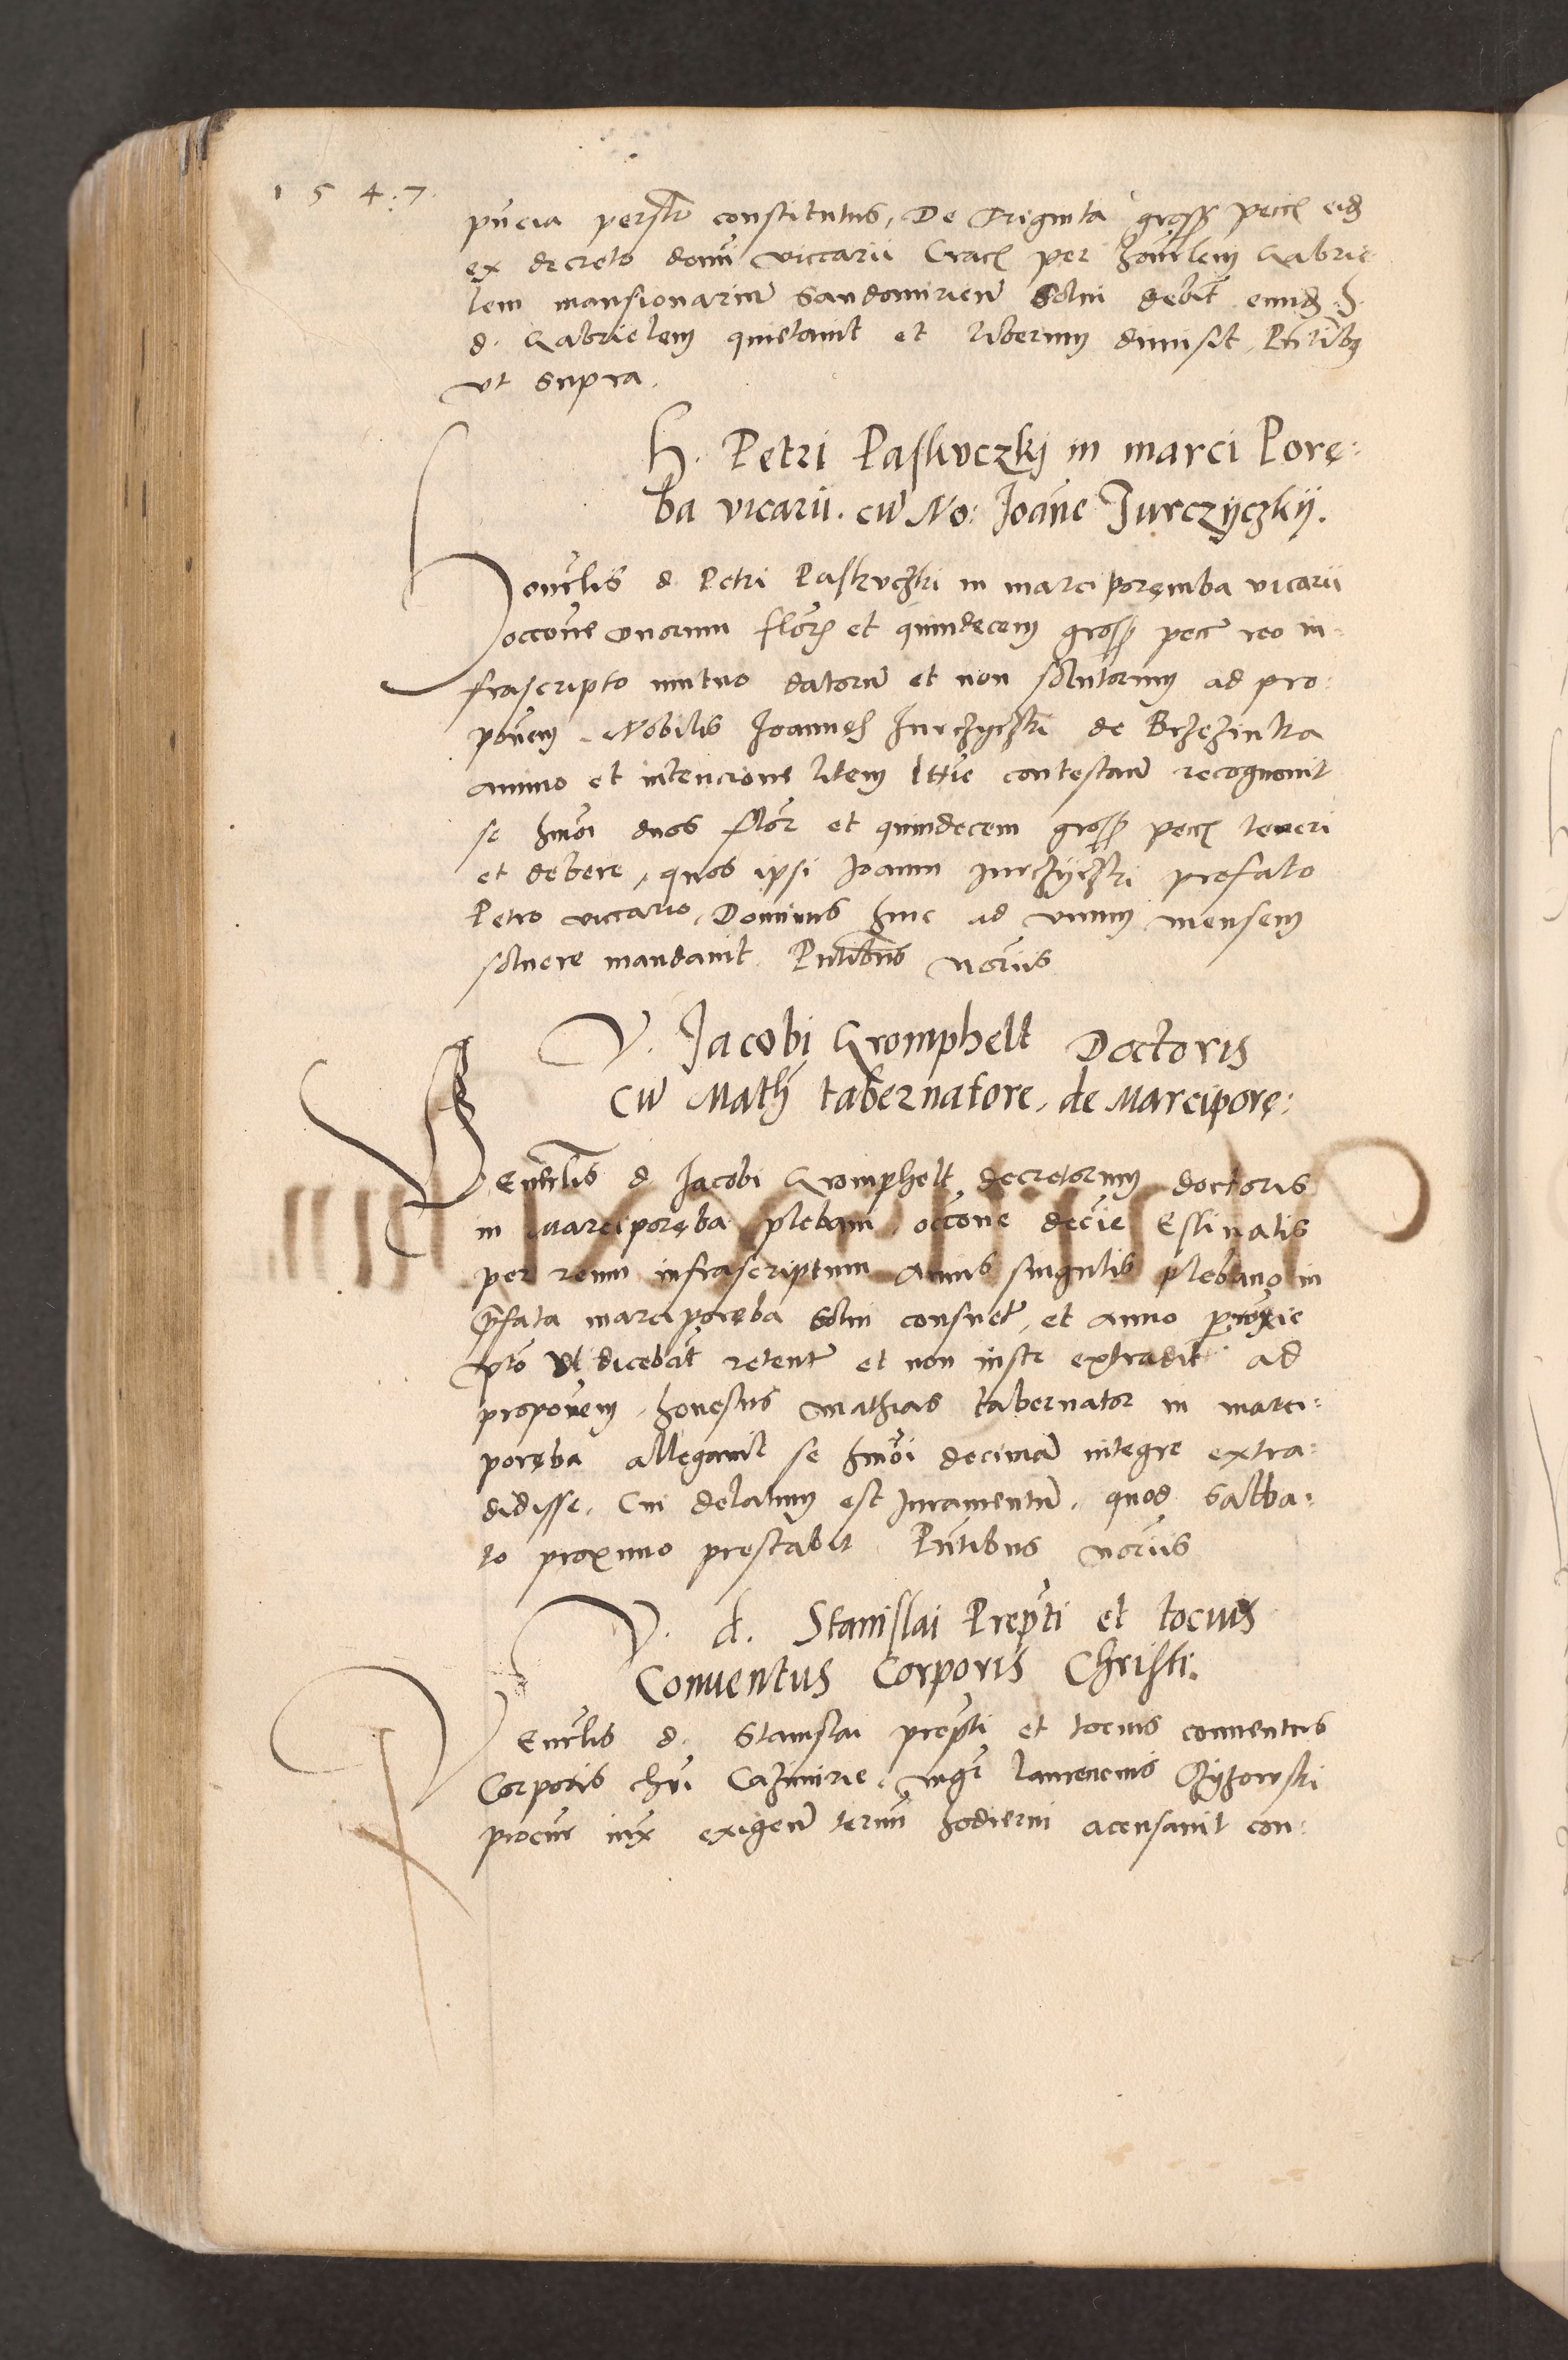 1547
pn̄cia persl̄r constitutus, De Triginta gross pecc eid
ex decreto domi viccarii Crac per honorlem Gabrie
lem mansionariū Sandomirien̄ Solui debit eund H.
d. Gabrielem quietauit et liberum dimisit, Pn̄tibq
vt supra.
H. Petri Paskvczkj in marci Porę:
ba vicarii. cū No: Joāne Jurczÿczkÿ.
Honorlis d. Petri Paskvczki in marciporęmba vicarii
occōne duorum flor et quindecem gross pecc reo in=
frascripto mutuo datorū et non solutorum ad pro:
pōnem. Nobilis Joannes Jurczyczki de Brzezinka
animo et intencione litem l̄ttīe contestan̄ recognouit
se hmōi duos flor et quindecem gross pecc teneri
et debere, quos ipsi Joanni Jurczÿczki prefato
Petro viccario, Dominus hinc ad vnum mensem
soluere mandauit. Pn̄tibus noriis
V. Jacobi Gromphelt Doctoris
cū Math tabernatore, de Marciporę:
Venerlis d Jacobi Gromphelt decretorum doctoris
in Marciporęba plebani, occōne decīe
per reum infrascriptum annis singulis plebano in
p̄fata marciporęba solui consuet, et anno proxīe
pt̄o vt dicebat retent et non iuste extradit ad
propōnem, honestus Mathias tabernator in marci:
poręba allegauit se hmōi decimā integre extra:
didisse, Cui delatum est Juramentū, quod Sabba:
to proximo prestabit Pn̄tibus noriis
V. d. Stanislai Prepti et tocius
Conuentus Corporis Christi.
Venerlis d. Stanislai prepti et tocius conuentus
Corporis chri Cazimirie, mgr laurencius Czyzowski
procur iux exigen̄ termi hodierni acusauit con: